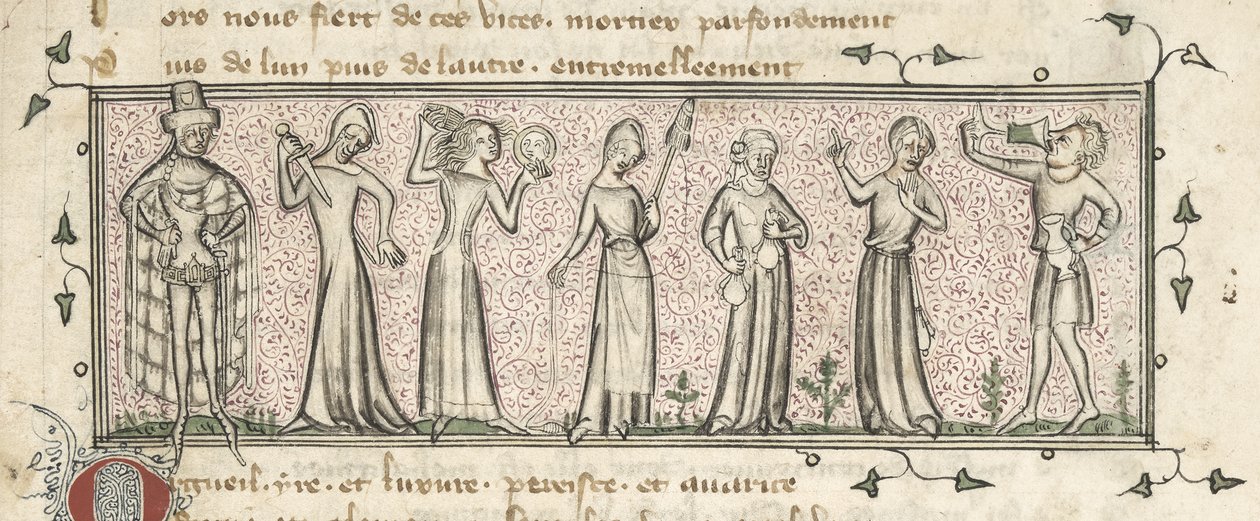 ors nous fiert de ces vices. mortiex parfondement
uis de lun puis de lautre. entremelleement
Orgueil. yre. et luxure. pereisce. et auarice